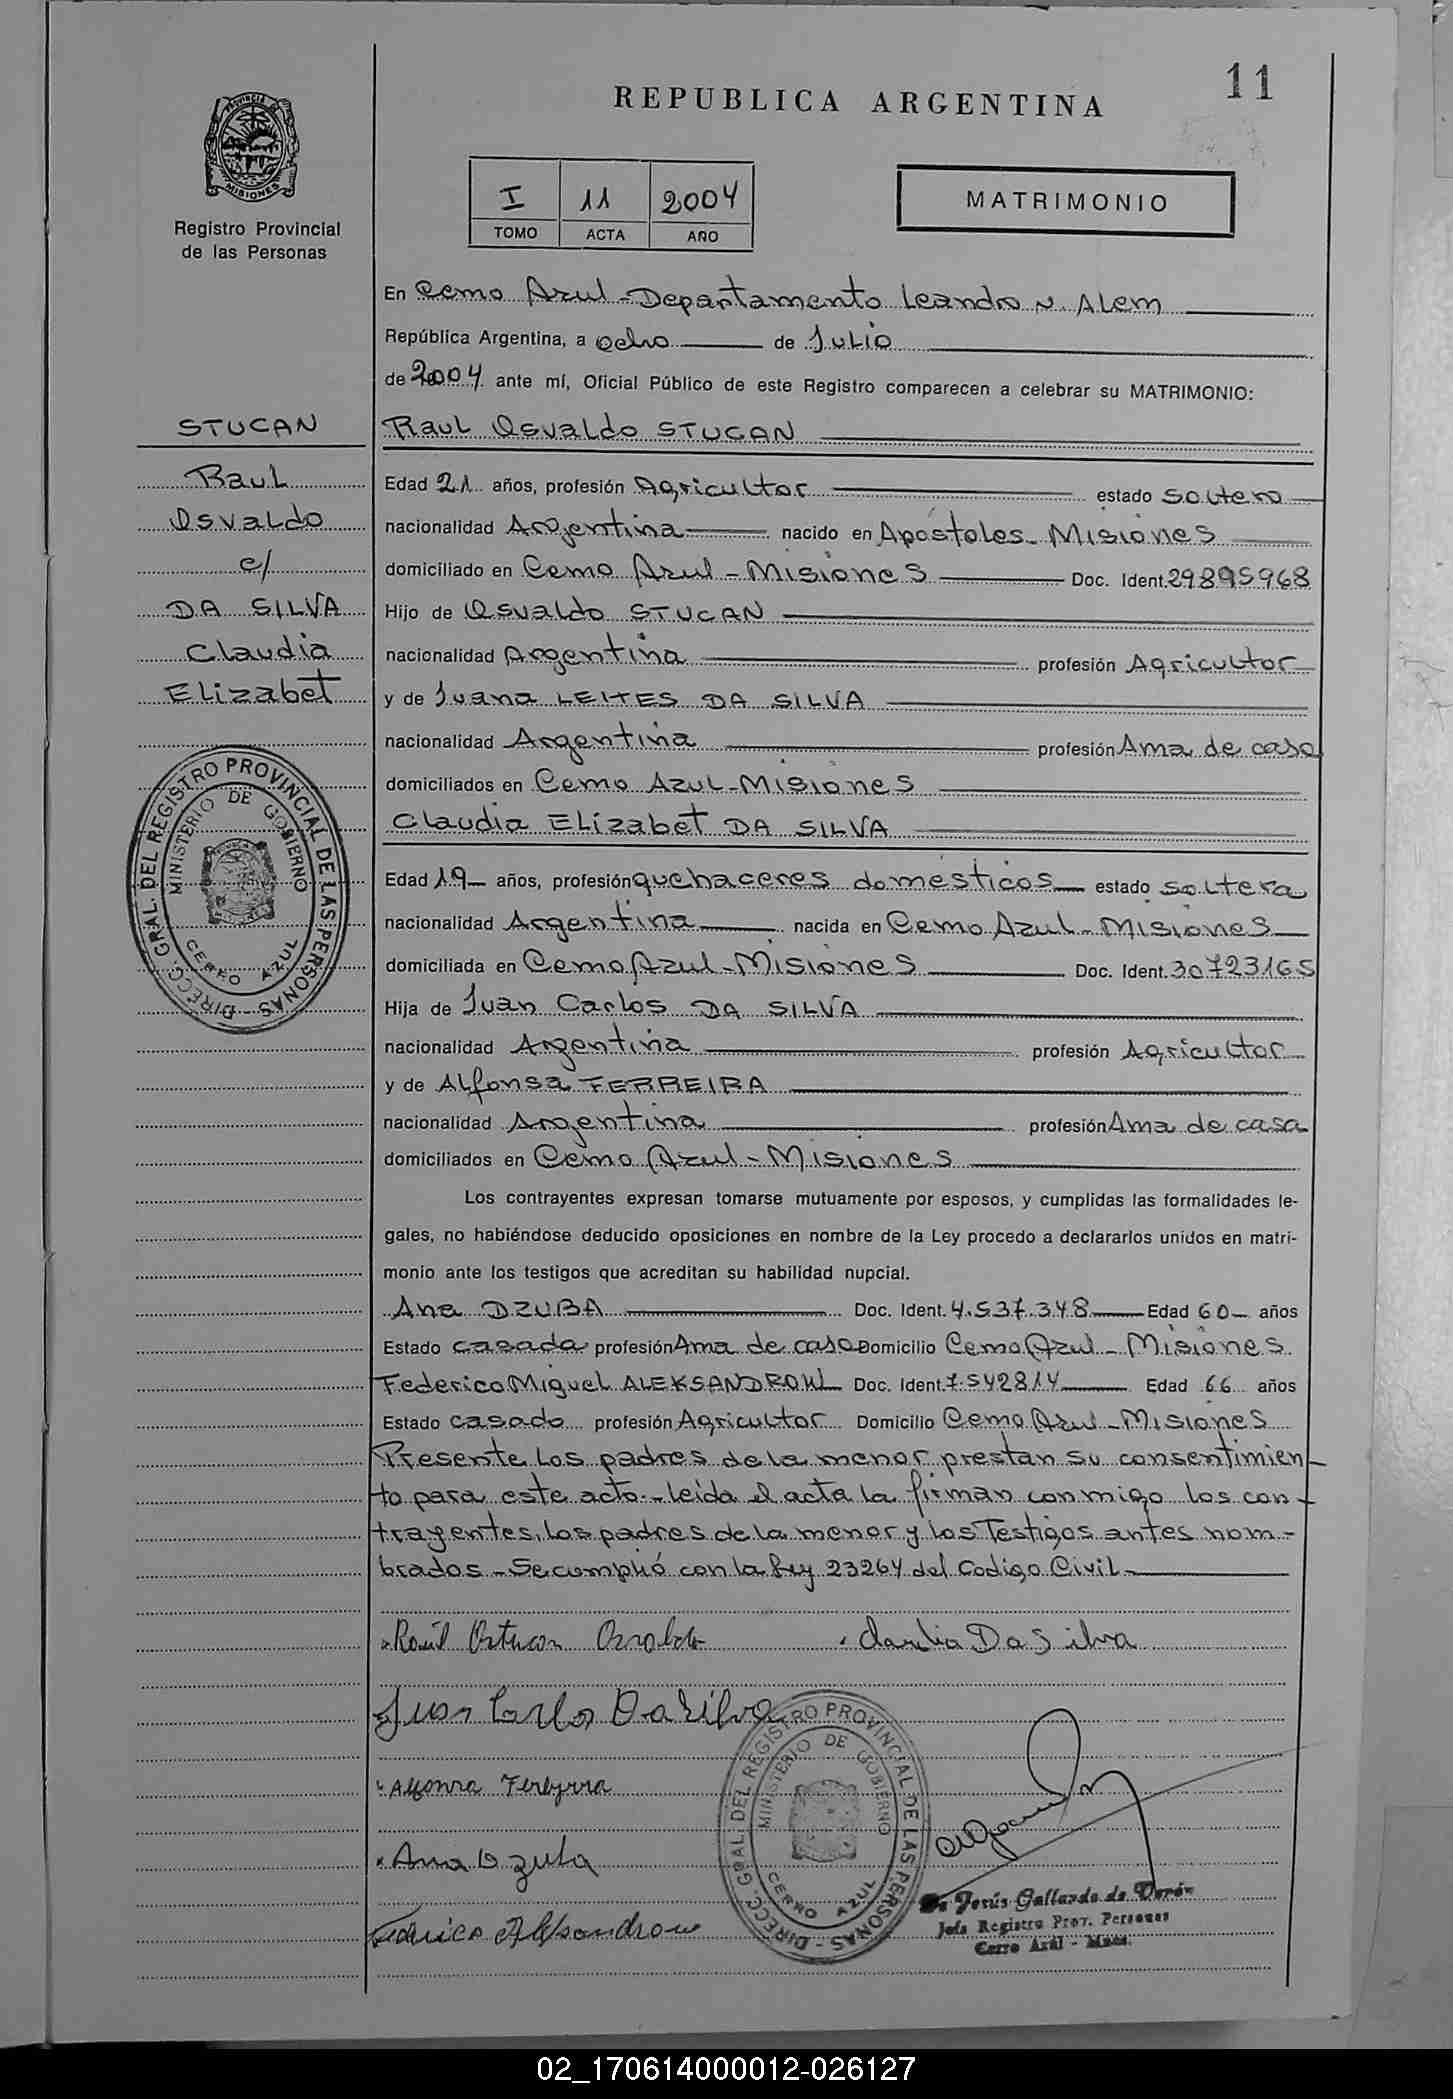 11
REPUBLICA ARGENTINA
PROVINCIA DE
MISIONES
Registro Provincial
de las Personas
I 11 2004
TOMO ACTA AÑO
MATRIMONIO
En Cerro Azul - Departamento Leandro N. Alem
República Argentina, a ocho de Julio
de 2004 ante mí, Oficial Público de este Registro comparecen a celebrar su MATRIMONIO:
STUCAN
Raul
Osvaldo
c/
DA SILVA
Claudia
Elizabet
Raul Osvaldo STUCAN
Edad 21 años, profesión Agricultor estado soltero
nacionalidad Argentina nacido en Apóstoles - Misiones
domiciliado en Cerro Azul - Misiones Doc. Ident. 29895968
Hijo de Osvaldo STUCAN
nacionalidad Argentina profesión Agricultor
y de Juana LEITES DA SILVA
nacionalidad Argentina profesión Ama de casa
domiciliados en Cerro Azul - Misiones
Claudia Elizabet DA SILVA
Edad 19 - años, profesión quehaceres domésticos estado soltera
nacionalidad Argentina nacida en Cerro Azul - Misiones
domiciliada en Cerro Azul - Misiones Doc. Ident. 30723165
Hija de Juan Carlos DA SILVA
nacionalidad Argentina profesión Agricultor
y de Alfonsa FERREIRA
nacionalidad Argentina profesión Ama de casa
domiciliados en Cerro Azul - Misiones
Los contrayentes expresan tomarse mutuamente por esposos, y cumplidas las formalidades le-
gales, no habiéndose deducido oposiciones en nombre de la Ley procedo a declararlos unidos en matri-
monio ante los testigos que acreditan su habilidad nupcial.
Ana DZUBA Doc. Ident. 4.537.348 Edad 60 - años
Estado casada profesión Ama de casa Domicilio Cerro Azul - Misiones
Federico Miguel ALEKSANDROW Doc. Ident. 7.542814 Edad 66 años
Estado casado profesión Agricultor Domicilio Cerro Azul - Misiones
Presente los padres de la menor prestan su consentimien-
to para este acto.- Leida el acta la firman conmigo los con-
trayentes, los padres de la menor y los Testigos antes nom-
brados - Se cumplió con la Ley 23264 del Codigo Civil -
DIRECC. GRAL. DEL REGISTRO PROVINCIAL DE LAS PERSONAS -
MINISTERIO DE GOBIERNO
CERRO AZUL
Claudia Da Silva
Juan Carlos Da Silva
Ana Dzuba
DIRECC. GRAL. DEL REGISTRO PROVINCIAL DE LAS PERSONAS -
MINISTERIO DE GOBIERNO
CERRO AZUL
Jesús Gallardo de Verón
Jefa Registro Prov. Personas
Cerro Azul - Mnes.
02_170614000012-026127